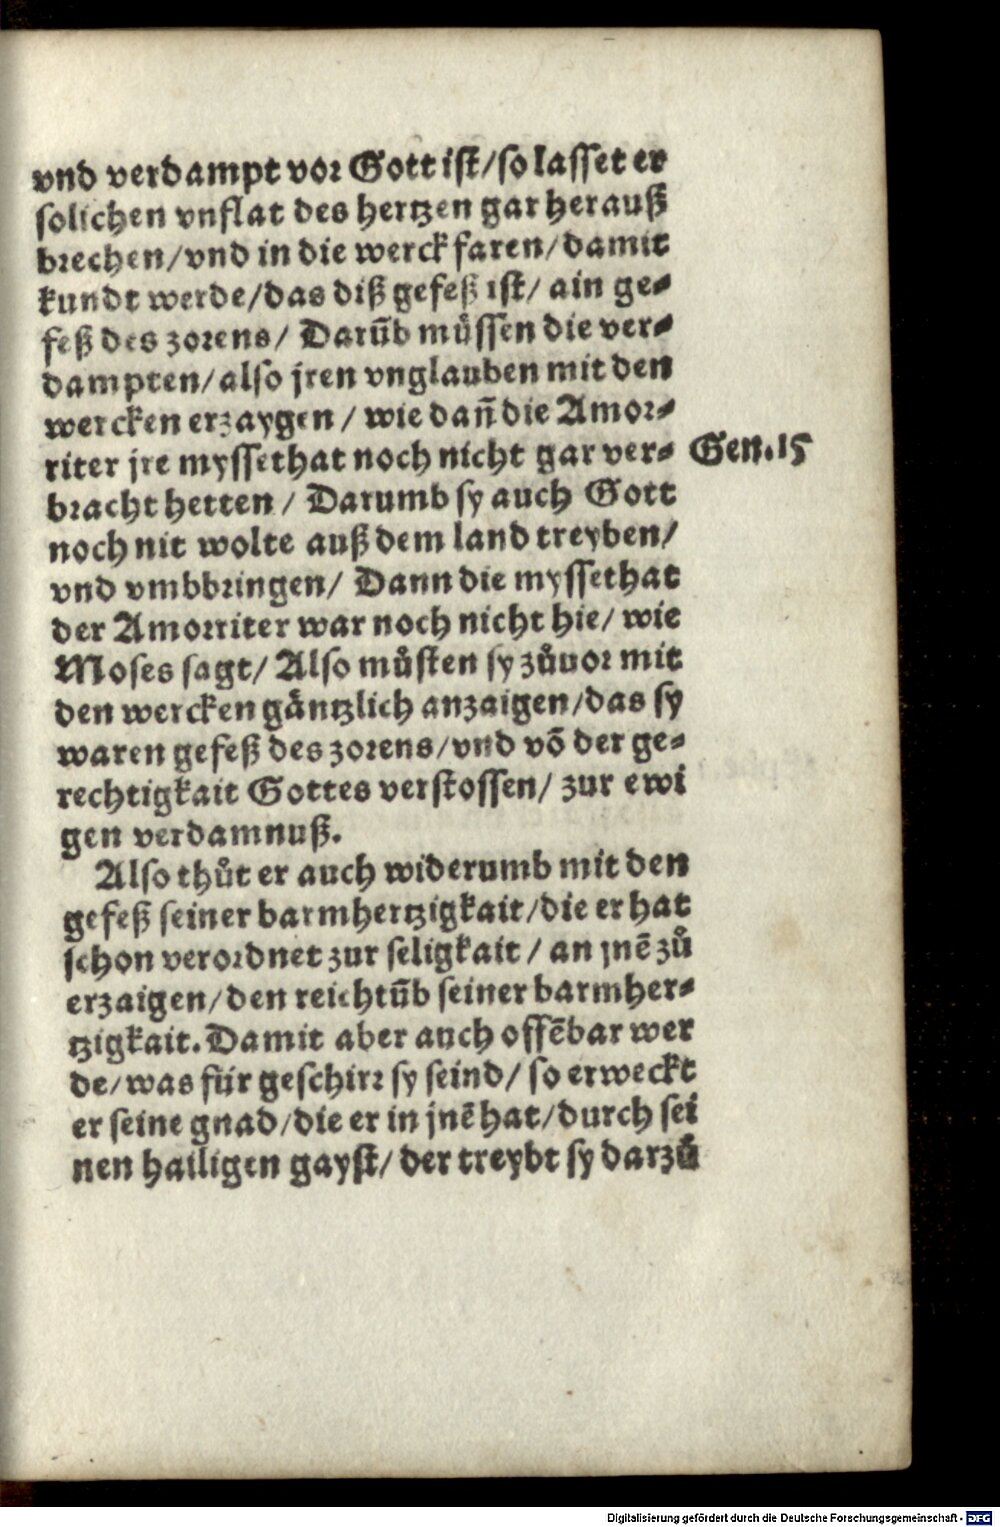 vnd verdampt vor Gott ist/so lasset er
solichen vnflat des hertzen gar herauß
brechen/vnd in die werck faren/damit
kundt werde/das diß gefeß ist/ ain ge⸗
feß des zorens/ Darūb müssen die ver⸗
dampten/also jren vnglauben mit den
wercken erzaygen / wie dañ die Amor⸗
riter jre myssethat noch nicht gar ver⸗ Gen.15
bracht hetten / Darumb sy auch Gott
noch nit wolte auß dem land treyben/
vnd vmbbringen/ Dann die myssethat
der Amorriter war noch nicht hie/ wie
Moses sagt/ Also müsten sy zůuor mit
den wercken gäntzlich anzaigen/das sy
waren gefeß des zorens/vnd võ der ge⸗
rechtigkait Gottes verstossen/ zur ewi
gen verdamnuß.
Also thůt er auch widerumb mit den
gefeß seiner barmhertzigkait/die er hat
schon verordnet zur seligkait / an jnē zů
erzaigen/den reichtūb seiner barmher⸗
tzigkait. Damit aber auch offēbar wer
de/was für geschirr sy seind/ so erweckt
er seine gnad/die er in jnē hat/durch sei
nen hailigen gayst/ der treybt sy darzů
Digitalisierung gefördert durch die Deutsche Forschungsgemeinschaft - DFG